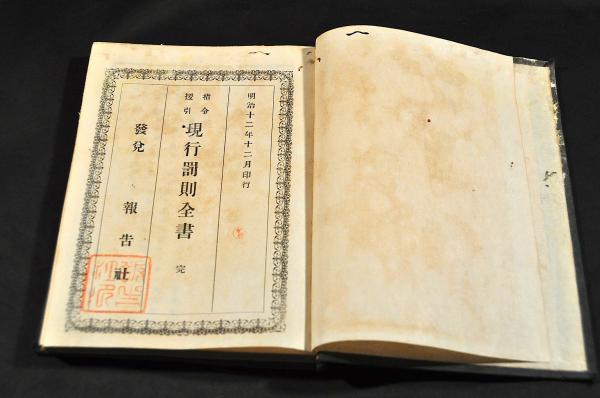 明治十二年十二月印行
指令
援引
現行罰則全書 完
發兌 報告社